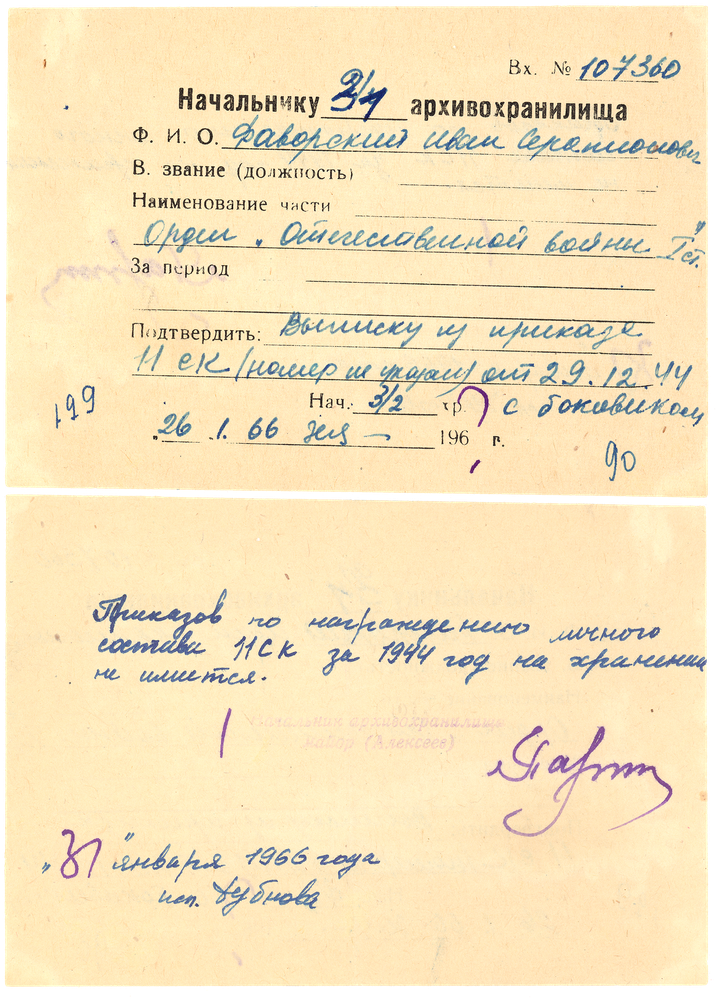 Вх. № 107360
Начальнику 3/4 архивохранилища
Ф. И. О. Фаворский Иван Серапионович
В. звание (должность)
Наименование части
Орден „Отечественной войны" I ст.
За период
Подтвердить: Выписку из приказа
11 СК (номер не указан) от 29.12.44
Нач. 3/2 хр. с боковиком
199
„26 1. 66 196 г.
90
Приказов по награждению личного
состава 11 СК за 1944 год на хранении
не имеется.
Начальник архивохранилища
майор (Алексеев)
„31" января 1966 года
исп. Дубнова